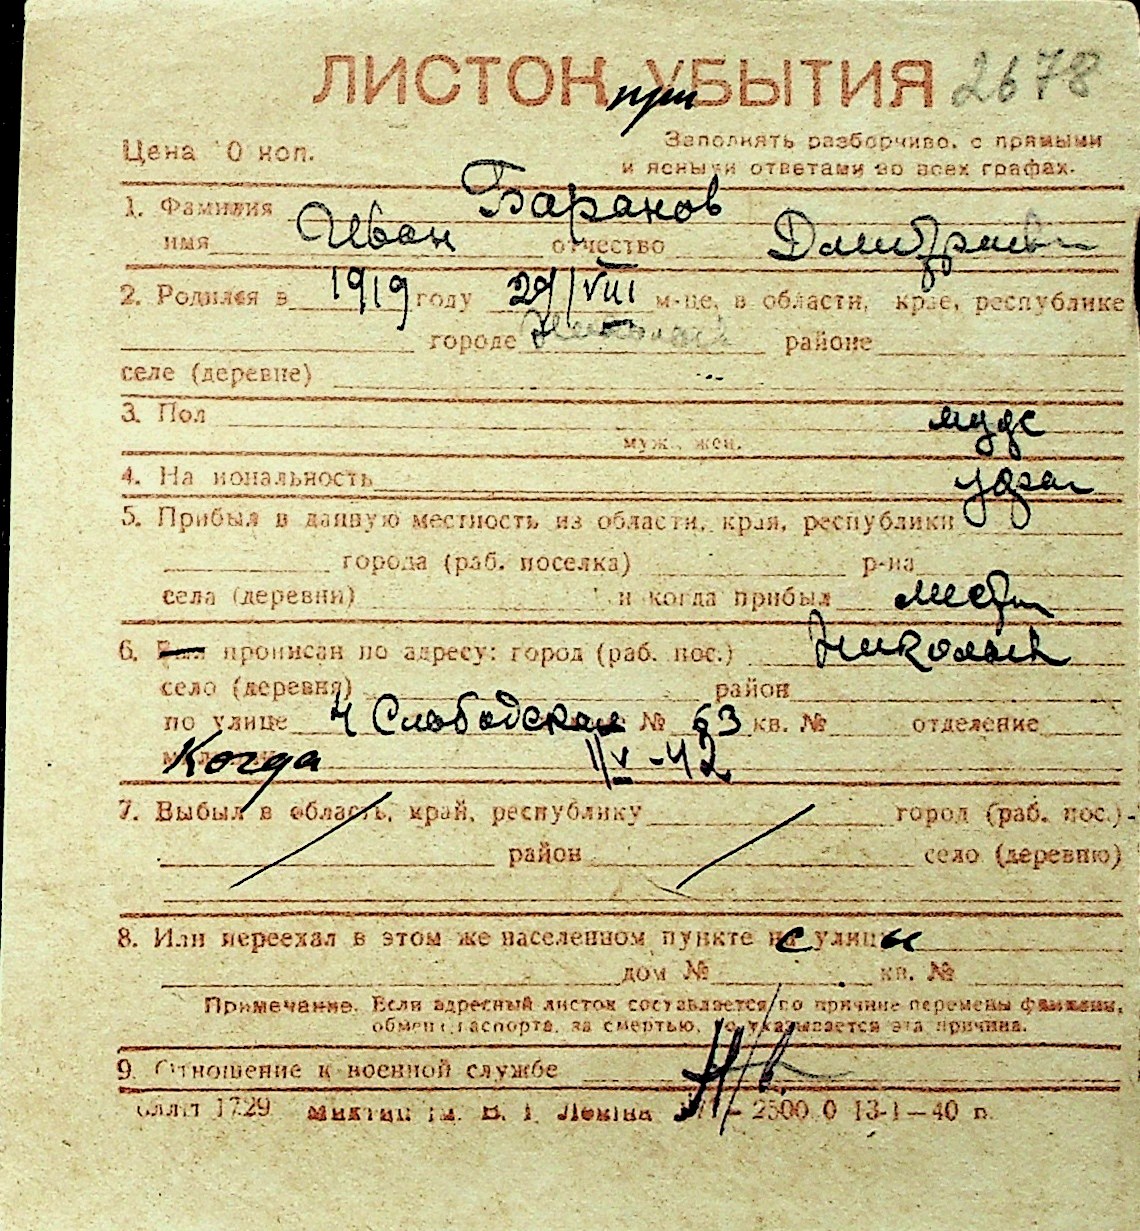 ЛИСТОК при УБЫТИЯ 2678
Цена 10 коп. Заполнять разборчиво, с прямыми
и ясными ответами во всех графах.
1. Фамилия Баранов
имя Иван отчество Дмитриев
2. Родился в 1919 году 29/VIII м-це, в области, крае, республике
городе Николаев районе
селе (деревне)
3. Пол муж
муж., жен.
4. Национальность украин
5. Прибыл в данную местность из области, края, республики
города (раб. поселка) р-на
села (деревни) и когда прибыл местн
6. Был прописан по адресу: город (раб. пос.) Николаев
село (деревня) район
по улице 4 Слободская № 63 кв. № отделение
Когда 1/V-42
7. Выбыл в область, край, республику город (раб. пос.)
район село (деревню)
8. Или переехал в этом же населенном пункте с улицы
дом № кв. №
Примечание. Если адресный листок составляется по причине перемены фамилии,
обмен паспорта, за смертью, то указывается эта причина.
9. Отношение к военной службе н/в
1729 им. В. І. Леніна 2500 0 13-1—40 п.